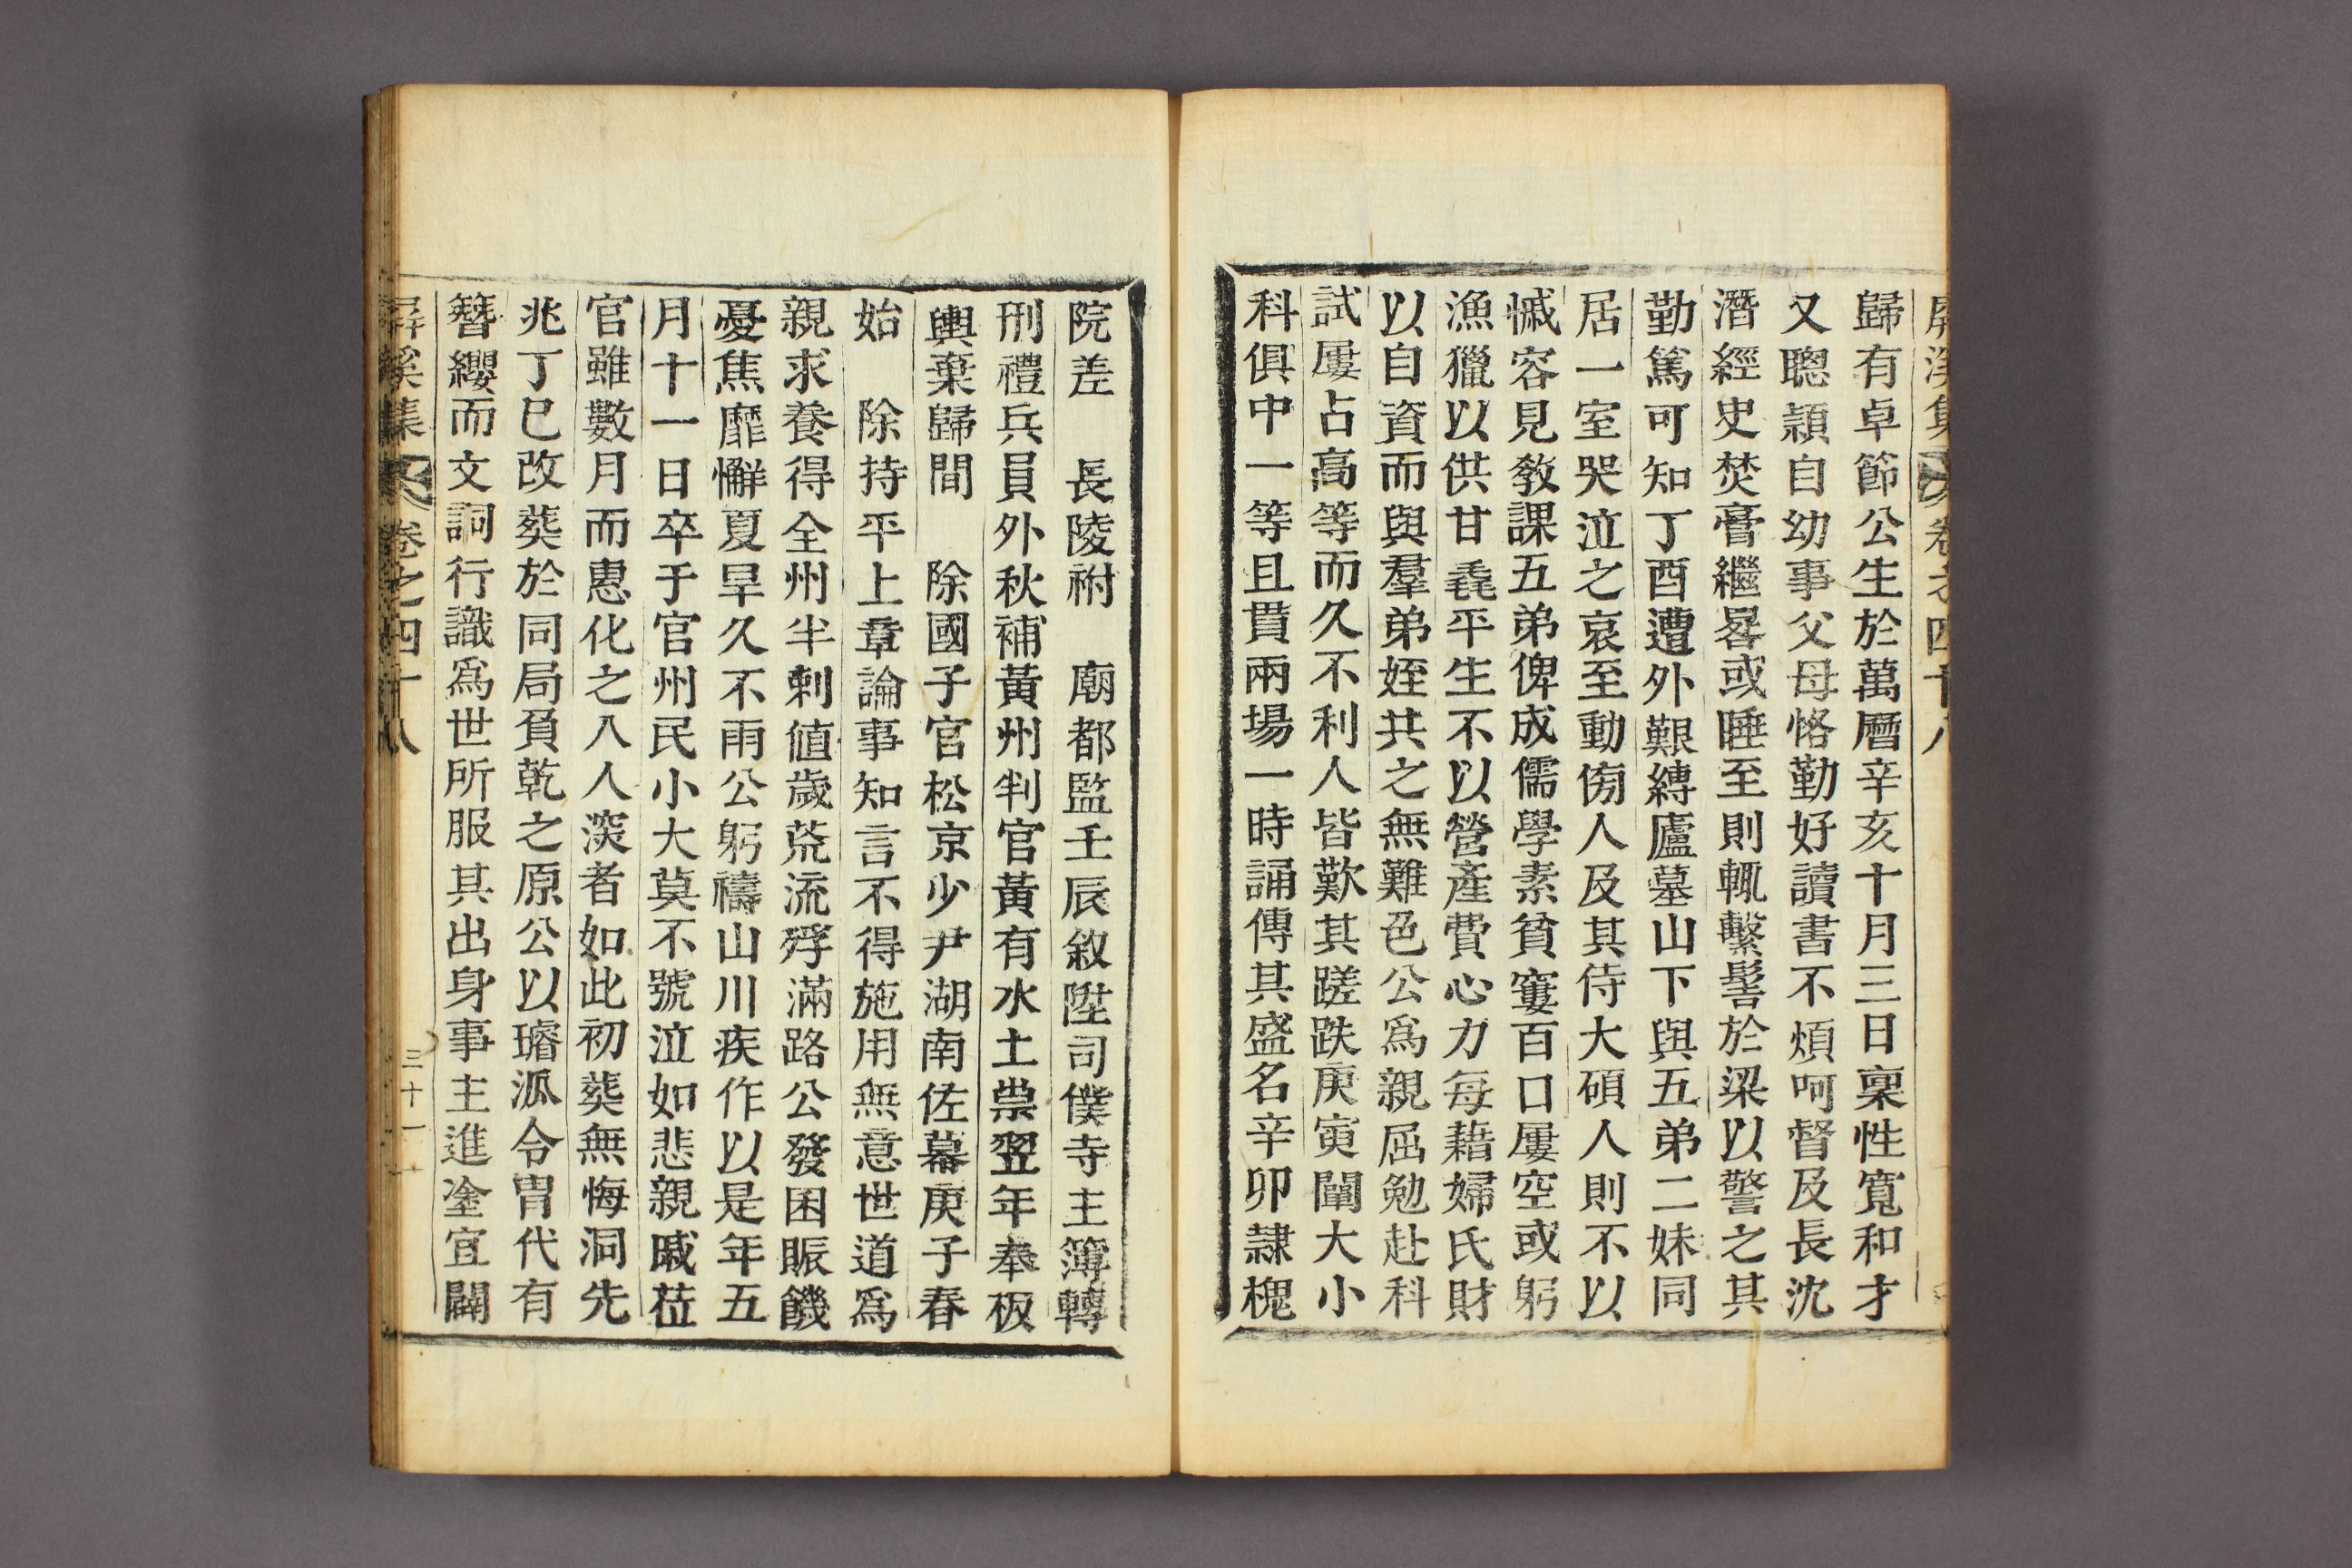 屏溪集 卷之四十八
歸有卓節公生於萬曆辛亥十月三日稟性寬和才
又聰穎自幼事父母恪勤好讀書不煩呵督及長沈
潛經史焚膏繼晷或睡至則輒繫髻於梁以警之其
勤篤可知丁酉遭外艱縛廬墓山下與五弟二妹同
居一室哭泣之哀至動傍人及其侍大碩人則不以
慽容見敎課五弟俾成儒學素貧窶百口屢空或躬
漁獵以供甘毳平生不以營產費心力每藉婦氏財
以自資而與羣弟姪共之無難色公爲親屈勉赴科
試屢占高等而久不利人皆歎其蹉跌庚寅闈大小
科俱中一等且貫兩場一時誦傳其盛名辛卯隷槐
院差 長陵祔 廟都監壬辰敘陞司僕寺主簿轉
刑禮兵員外秋補黃州判官黃有水土祟翌年奉板
輿棄歸間 除國子官松京少尹湖南佐幕庚子春
始 除持平上章論事知言不得施用無意世道爲
親求養得全州半刺値歲荒流殍滿路公發困賑饑
憂焦靡懈夏旱久不雨公躬禱山川疾作以是年五
月十一日卒于官州民小大莫不號泣如悲親戚莅
官雖數月而惠化之入人深者如此初葬無悔洞先
兆丁巳改葬於同局負乾之原公以璿派令冑代有
簪纓而文詞行識爲世所服其出身事主進塗宜闢
屏溪集 卷之四十八 三十一